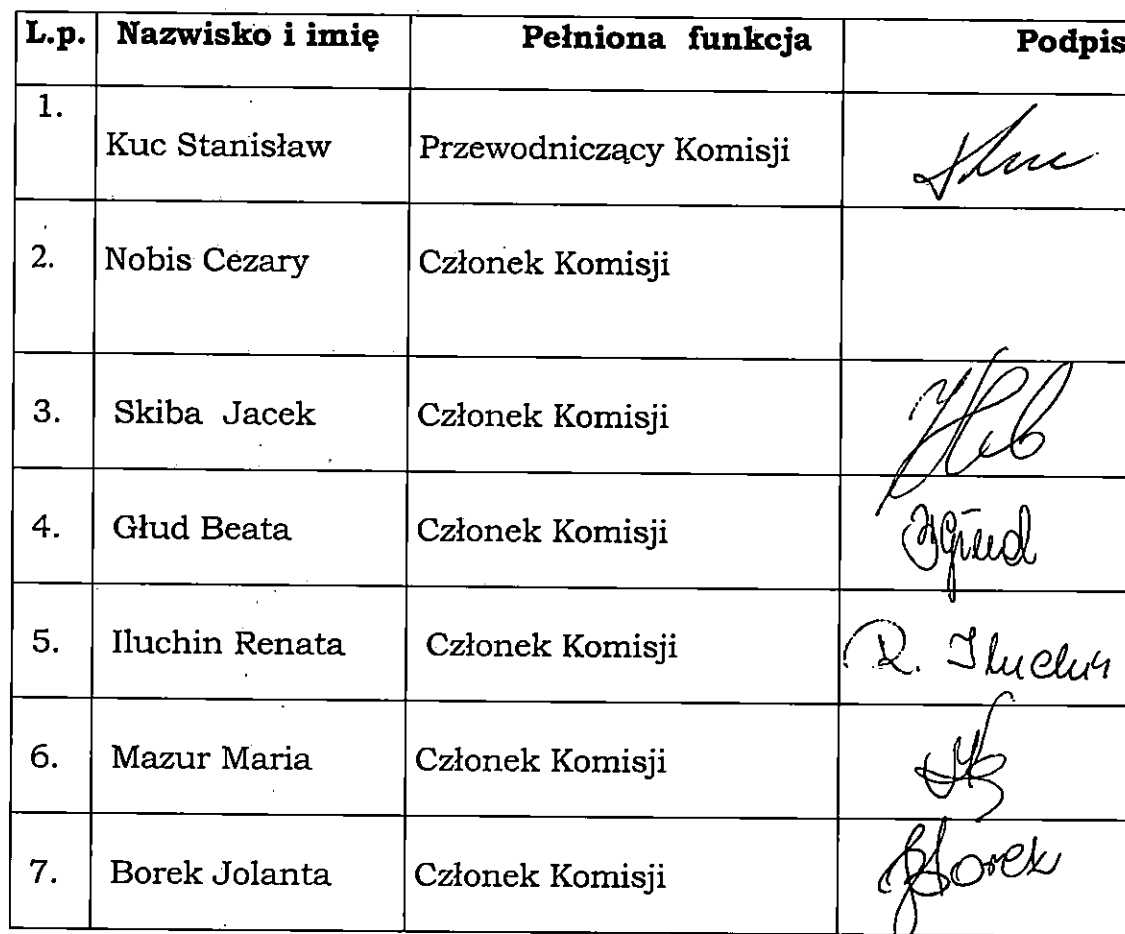 L.p. Nazwisko i imię Pełniona funkcja Podpis
1. Kuc Stanisław Przewodniczący Komisji
2. Nobis Cezary Członek Komisji
3. Skiba Jacek Członek Komisji
4. Głud Beata Członek Komisji
5. Iluchin Renata Członek Komisji R. Iluchin
6. Mazur Maria Członek Komisji
7. Borek Jolanta Członek Komisji Borek